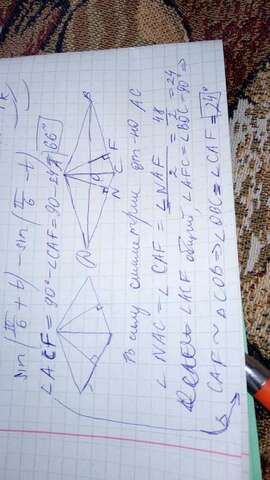 sin(π/6 + t) - sin(π/6 - t)
∠ACF = 90° - ∠CAF = 90 - 24 = 66°
В
О
N
C
F
В силу симметрии отн-но AC
∠NAC = ∠CAF = ∠NAF/2 = 48/2 = 24
∠ACF общий, ∠AFC = ∠BOC = 90 ⇒
CAF ~ △COB ⇒ ∠OBC = ∠CAF = 24°